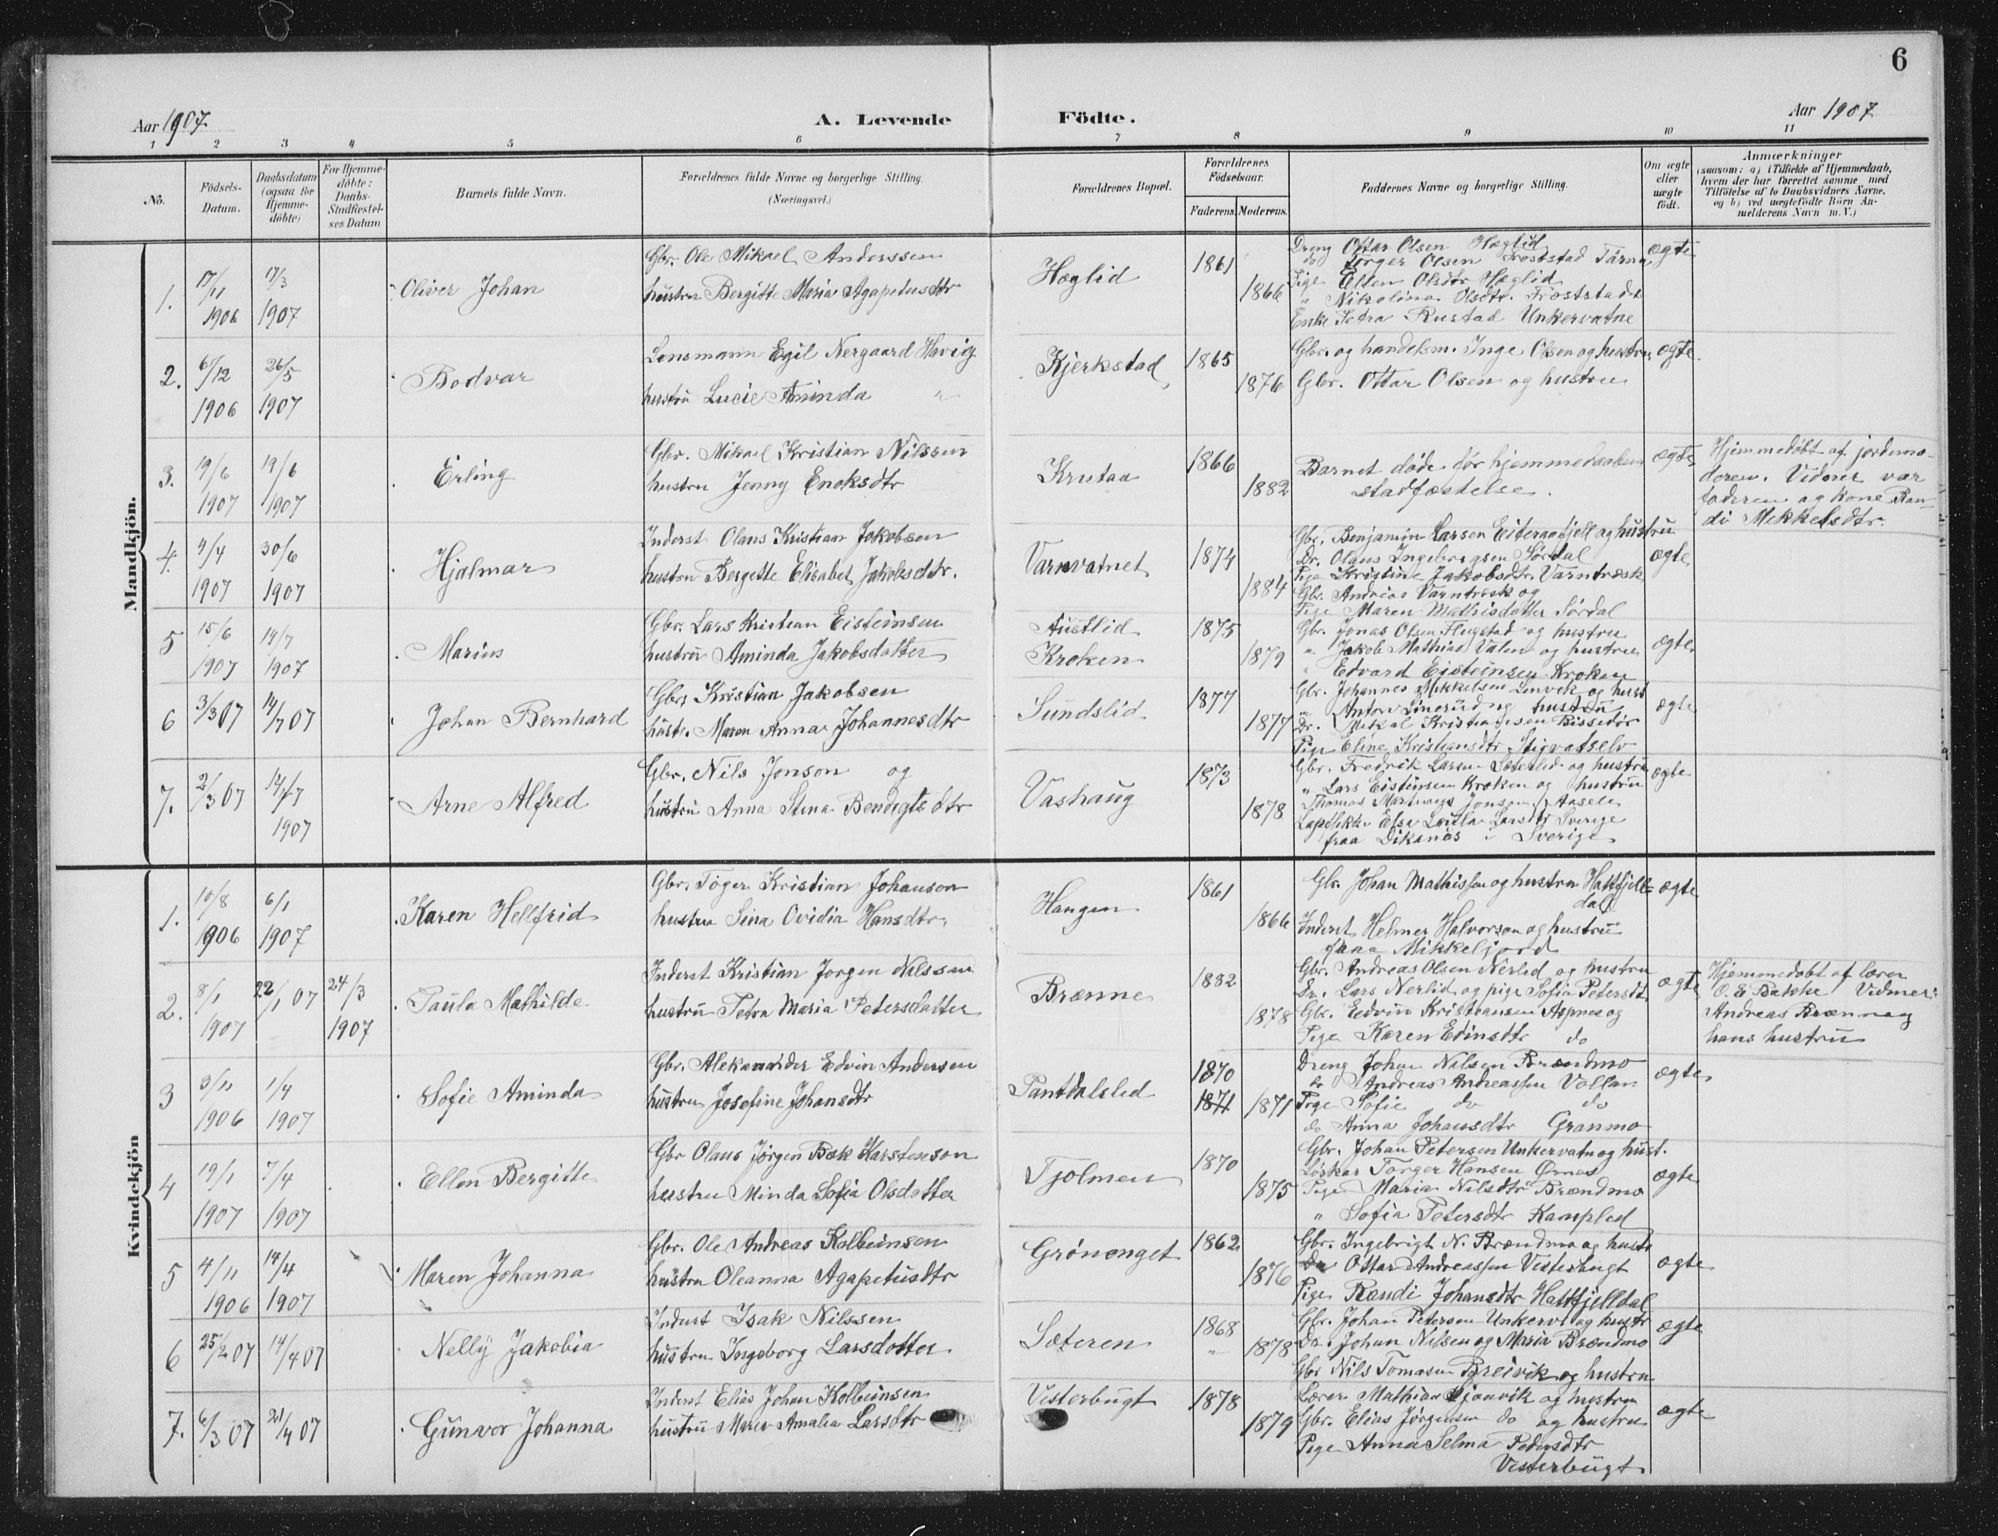 6
Aar 1907.
A. Levende Födte.
Aar 1907
1 2 3 4 5 6 7 8 9 10 11
No.
Födsels-Datum.
Daabsdatum (ogsaa for Hjemme-döbte)
For Hjemme-döbte: Daabs-Stadfæstel-ses Datum
Barnets fulde Navn.
Forældrenes fulde Navne og borgerlige Stilling. (Næringsvei.)
Forældrenes Bopæl.
Forældrenes Födselsaar.
Faderens. Moderens.
Faddernes Navne og borgerlige Stilling.
Om ægte eller uægte födt.
Anmærkninger
(saasom: a) i Tilfælde af Hjemmedaab, hvem der har forrettet samme med Tilföielse af to Daabsvidners Navne, og b) ved uægtefödte Börn An-melderens Navn m. V.)
Mandkjön.
1. 17/11 1906 17/3 1907 Oliver Johan
Gbr. Ole Mikael Anderssen
hustru Bergitte Maria Agapetusdtr
Hæglid 1861 1866
Dreng Ottar Olsen Hæglid
do Torger Olsen Froststad Tärna
Pige Ellen Olsdtr Hæglid
" Nikolina Olsdtr. Froststad
Enke Petra Rustad Unkervatne
ægte
2. 6/12 1906 26/5 1907 Bodvar
Lensmann Egil Nergaard Havig
hustru Lucie Aminda "
Kjerkstad 1865 1876
Gbr. og handelsm. Inge Olsen og hustru
Gbr. Ottar Olsen og hustru
ægte
3. 19/6 1907 19/6 1907 Erling
Gbr. Mikael Kristian Nilssen
hustru Jenny Enoksdtr
Krutaa 1866 1882
Barnet døde før hjemmedaabens
stadfæstelse.
ægte
Hjemmedøbt af jordemo-
deren. Vidner var
faderen og kone Ran-
di Mikkelsdtr.
4. 4/4 1907 30/6 1907 Hjalmar
Inderst Olaus Kristian Jakobsen
hustru Bergette Elisabet Jakobsdtr.
Varnvatnet 1874 1884
Gbr. Benjamin Larsen Eiteraafjell og hustru
Dr. Olaus Ingebrigtsen Sørdal
Pige Kristine Jakobsdtr. Varntræsk
Gbr. Andrias Varntresk og
Pige Maren Mathisdatter Sørdal
ægte
5 15/6 1907 14/7 1907 Marius
Gbr. Lars Kristian Eisteinsen
hustru Aminda Jakobsdatter
Austlid
Kroken 1875 1879
Gbr. Jonas Olsen Flugstad og hustru
" Jakob Mathias Valen og hustru
" Edvard Eisteinsen Kroken
ægte
6 3/3 07 14/7 07 Johan Bernhard
Gbr. Kristian Jakobsen
hustr. Maren Anna Johannesdtr
Sundslid 1877 1877
Gbr. Johannes Mikkelsen Lenvik og hust
" Anton Linerud og hustru
Pige Eline Kristiansdtr Stigvasselv
ægte
7. 2/3 07 14/7 1907 Arne Alfred
Gbr. Nils Jonson og
hustru Anna Stina Bendigtsdtr
Vashaug 1873 1878
Gbr. Fredrik Larsen Sæterlid og hustru
" Lars Eisteinsen Kroken og hustru
Thomas Jonson Aasele
Elsa Larsdtr Sverige
fraa Dikanäs i Sverige
ægte
Kvindekjön
1. 10/8 1906 6/1 1907 Karen Hellfrid
Gbr. Töger Kristian Johanson
hustru Sina Ovidia Hansdtr.
Haugen 1861 1866
Gbr. Johan Mathissen og hustru Hattfjell-
dal
Inderst Helmer Halvorson og hustru
fraa Mikkeljord
ægte
2. 8/1 1907 22/1 07 24/3 1907 Paula Mathilde
Inderst Kristian Jorgen Nilssen
hustru Petra Maria Petersdatter
Brænne 1882 1878
Gbr. Andreas Olsen Nerlid og hustru
Dr. Lars Nerlid og pige Sofia Petersdt
Gbr. Edvin Kristiansen Aspnes og
Pige Karen Edinsdtr do
ægte
Hjemmedøbt af lærer
O. E Batche Vidner:
Andreas Brænn og
hans hustru
3 3/11 1906 1/4 1907 Sofie Aminda
Gbr. Aleksander Edvin Andersen
hustru Josefine Johansdtr
Pantdalslid 1870 1871 1871
Dreng Johan Nilsen Brændmo
do Andreas Andreassen Vollan
Pige Sofie do do
do Anna Johansdtr Granmo
ægte
4 19/1 1907 7/4 1907 Ellen Bergitte
Gbr Olaus Jørgen Bæk Karstenson
hustru Minda Sofia Olsdatter
Tjolmen 1870 1875
Gbr. Johan Petersen Unkervatn og hust.
Løskar Torger Hansen Ørnes
Pige Maria Nilsdtr Brændmo
" Sofia Petersdtr Kampled
ægte
5 4/11 1906 14/4 1907 Maren Johanna
Gbr. Ole Andreas Kolbeinsen
hustru Oleanna Agapetusdtr
Grønenget 1862 1876
Gbr. Ingebrigt N. Brændmo og hustr
Dr Ottar Andreassen Vesterbugt
Pige Randi Johansdtr Hattfjelldal
ægte
6 25/2 07 14/4 07 Nelly Jakobia
Inderst Isak Nilssen
hustru Ingeborg Larsdatter
Sæteren 1868 " 1878
Gbr. Johan Petersen Unkerv. og hustr
Dr. Johan Nilsen og Maria Brændmo
Gbr Nils Tomasen Breivik og hustru
ægte
7. 6/3 07 21/4 07 Gunvor Johanna
Inderst Elias Johan Kolbeinsen
hustru Maria Amalia Larsdtr
Vesterbugt 1878 1879
Lærer Mathias Sjaavik og hustru
Gbr. Elias Jørgensen do og hustru
Pige Anna Selma Pedersdtr
Vesterbugt
ægte